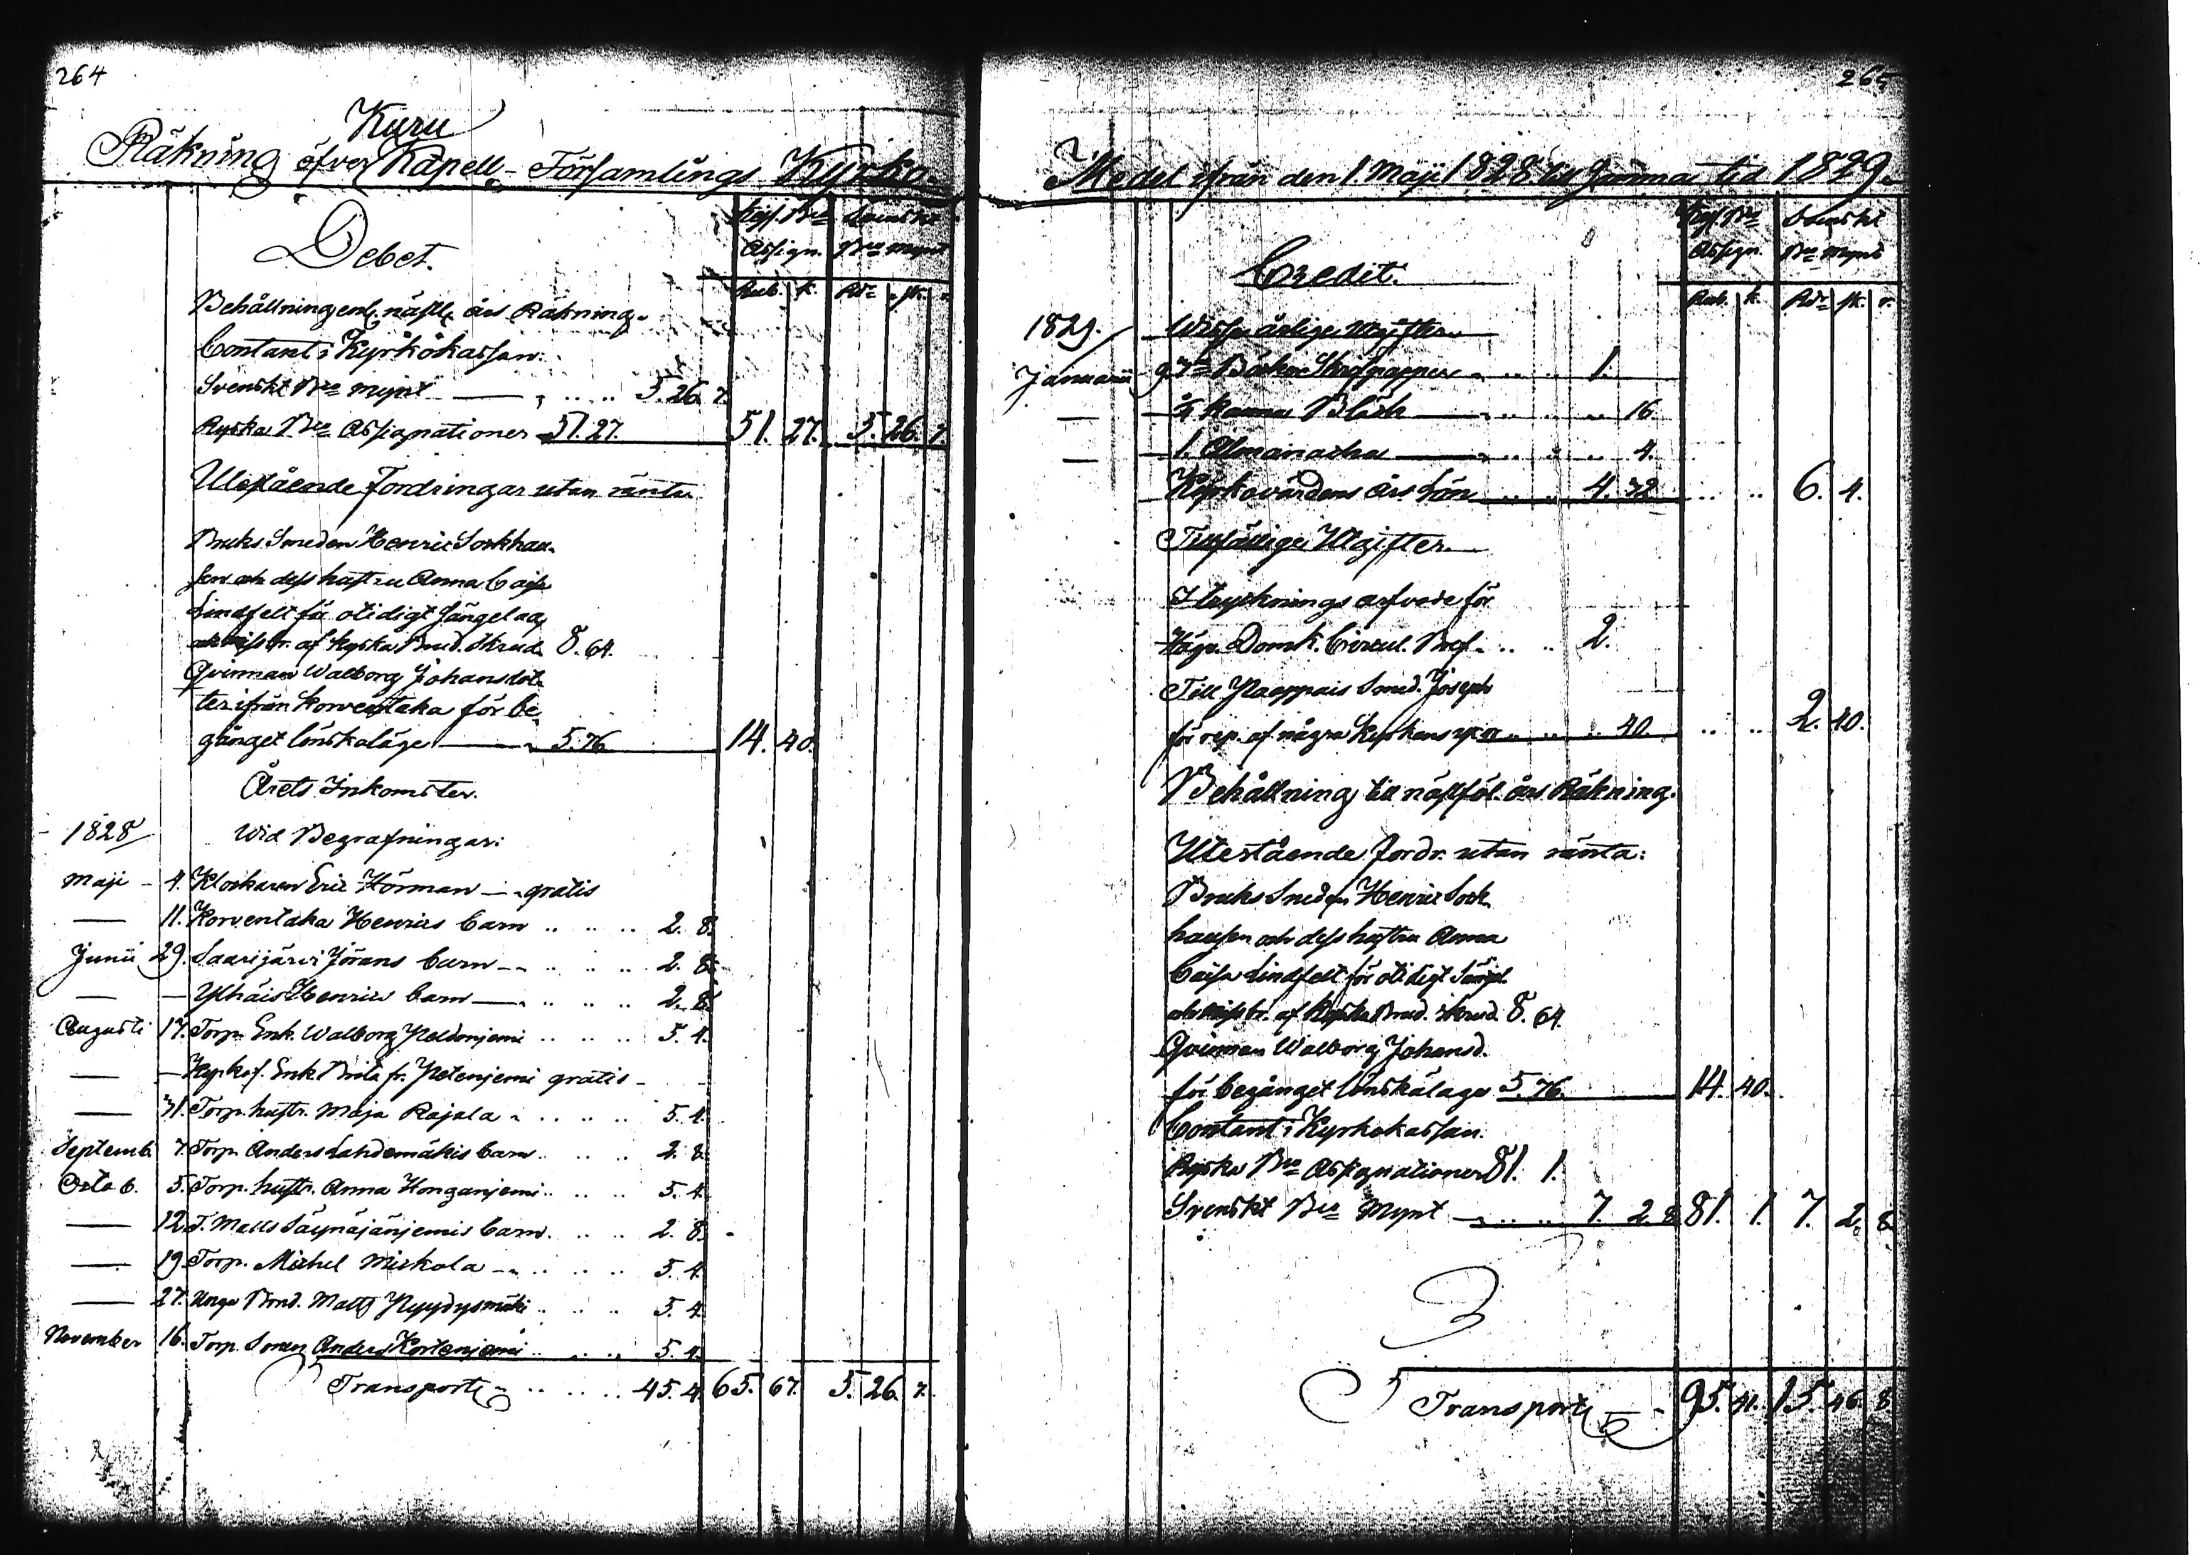 264
Kuru
Räkning öfver Kapell-Församlings Kyrko-
Debet.
Ryss. Bco Assign.
Svenskt Bco mynt
Rub. k. Rdr sk. r.
Behållning enl. nästl. års Räkning.
Contant i Kyrkokassan:
Svenskt Bco mynt 5. 26. 7.
Ryska Bco Assignationer 51. 27. 51. 27. 5. 26. 7.
Utestående Fordringar utan ränta
Bruks Smeden Henric Sorkhau-
sen och dess hustru Anna Caisa
Lindfelt för otidigt sängelag
af Kyska Brud. Skrud. 8. 64.
Qvinnan Walborg Johansdot-
ter ifrån Korventaka för be-
gånget lönskaläge 5. 76 14. 40.
Årets Inkomster.
1828 Wid Begrafningar:
Maji 4. Klockaren Eric Hörman gratis
11. Korventaka Henrics barn 2. 8.
Junii 29. Saarijärvi Jörans barn 2. 8.
Ylhäis Henrics barn 2. 8.
Augusti 17. Torp. Enk. Walborg 5. 4.
Enk. Brita fr. gratis
31. Torp. hustr. Maja Rajala 5. 4.
Septemb. 7. Torp. Anders Lahdemäkis barn 2. 8.
Octob. 5. Torp. hustr. Anna Honganjemi 5. 4.
12. T. Matts Säynäjänjemis barn 2. 8.
19. Torp. Michel Miskola 5. 4.
27. Unga Bond. Matts 5. 4.
November 16. Torp. Sonen Anders Kortenjemi 5. 4.
Transport 45. 4. 65. 67. 5. 26. 7.
265
Medel ifrån den 1. Maji 1828 till samma tid 1829.
Credit.
Ryss. Bco Assign.
Svenskt Bco mynt
Rub. k. Rdr sk. r.
1829. Wissa årliga Utgifter
Januarii 1.
½ kanna Bläck 16
1. Almanacha 4.
Kyrkovärdens års Lön 4. 32 6. 4.
Tillfällige Utgifter
arfvode för
Domk. Circul. Bref 2.
Till Smed. Joseph
för rep. af några 40 2. 40.
Behållning till nästföl. års Räkning.
Utestående Fordr. utan ränta:
Bruks Smeden Henric Sork-
hausen och dess hustru Anna
Caisa Lindfelt för otidigt Sängel.
af Kyska Brud. skrud. 8. 64.
Qvinnan Walborg Johansd.
för begånget lönskaläge 5. 76. 14. 40.
Contant i Kyrkokassan.
Ryska Bco Assignationer 81. 1.
Svenskt Bco Mynt 7. 2. 8. 81. 1. 7. 2. 8.
Transport 95. 41. 15. 46. 8.